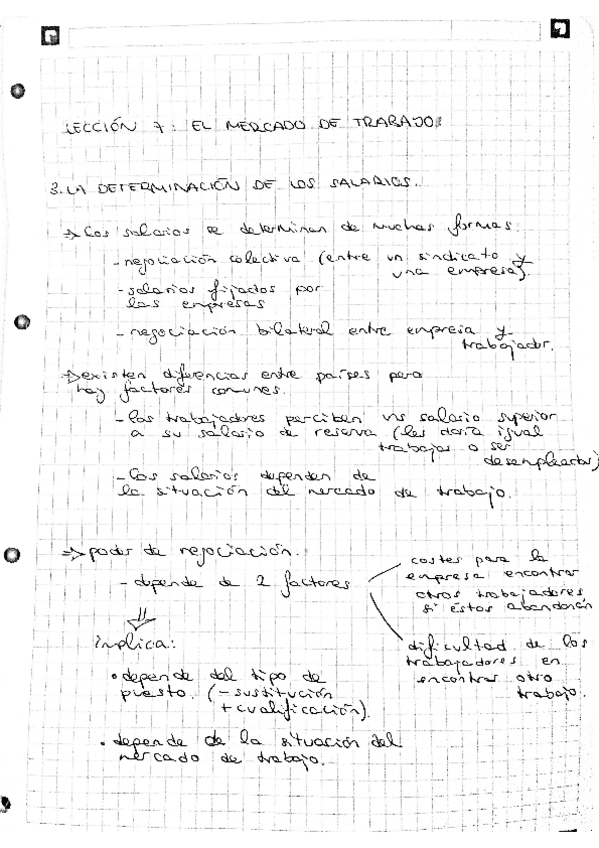 LECCIÓN 7: EL MERCADO DE TRABAJO:
3. LA DETERMINACIÓN DE LOS SALARIOS.
⇒ Los salarios se determinan de muchas formas:
- negociación colectiva (entre un sindicato y
una empresa).
- salarios fijados por
las empresas
- negociación bilateral entre empresa y
trabajador.
⇒ existen diferencias entre países pero
hay factores comunes.
- los trabajadores perciben un salario superior
a su salario de reserva (les daría igual
trabajar o ser
desempleados)
- Los salarios dependen de
la situación del mercado de trabajo.
⇒ poder de negociación.
- depende de 2 factores
costes para la
empresa encontrar
otros trabajadores
si éstos abandonan
dificultad de los
trabajadores en
encontrar otro
trabajo.
Implica:
• depende del tipo de
puesto. (- sustitución
+ cualificación).
• depende de la situación del
mercado de trabajo.